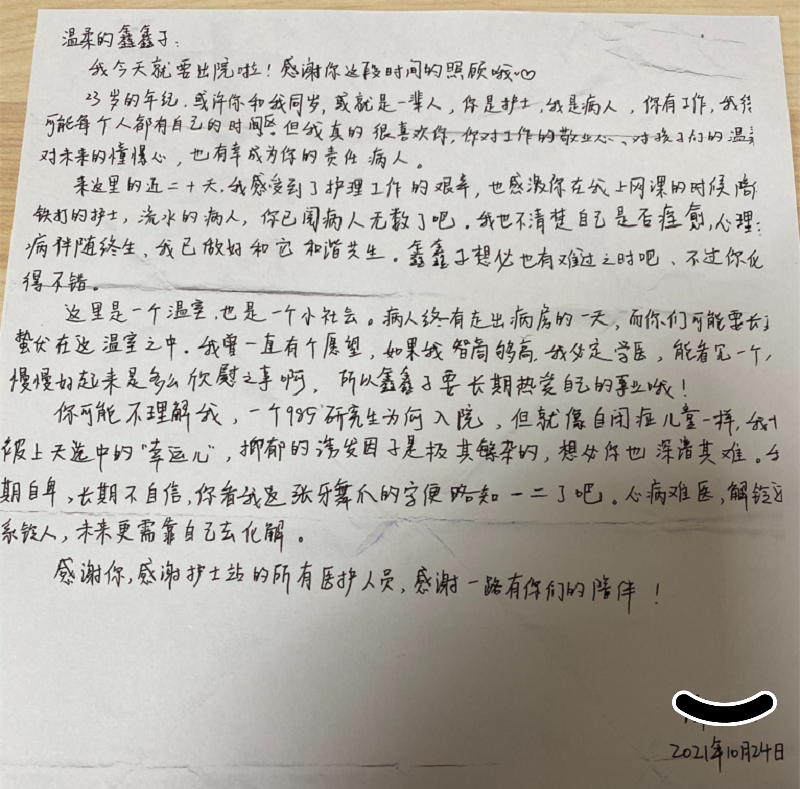 温柔的鑫鑫子：
我今天就要出院啦！感谢你这段时间的照顾哦~♡
23岁的年纪，或许你和我同岁，或就是一辈人，你是护士，我是病人，你有工作，我
可能每个人都有自己的时间区，但我真的很喜欢你，你对工作的敬业心、对孩子们的温
对未来的憧憬心，也有幸成为你的责任病人。
来这里的近二十天，我感受到了护理工作的艰辛，也感激你在我上网课的时候陪
铁打的护士，流水的病人，你已阅病人无数了吧。我也不清楚自己是否痊愈，心理
病伴随终生，我已做好和它和谐共生。鑫鑫子想必也有难过之时吧、不过你
得不错。
这里是一个温室，也是一个小社会。病人终有走出病房的一天，而你们可能要长
蛰伏在这温室之中。我曾一直有个愿望，如果我智商够高，我必定学医，能看见一个人
慢慢好起来是多么欣慰之事啊，所以鑫鑫子要长期热爱自己的事业哦！
你可能不理解我，一个985研究生为何入院，但就像自闭症儿童一样，我
被上天选中的“幸运儿”，抑郁的诱发因子是极其繁杂的，想必你也深谙其难。
期自卑，长期不自信，你看我这张牙舞爪的字便略知一二了吧。心病难医，解铃
系铃人，未来更需靠自己去化解。
感谢你，感谢护士站的所有医护人员，感谢一路有你们的陪伴！
2021年10月24日